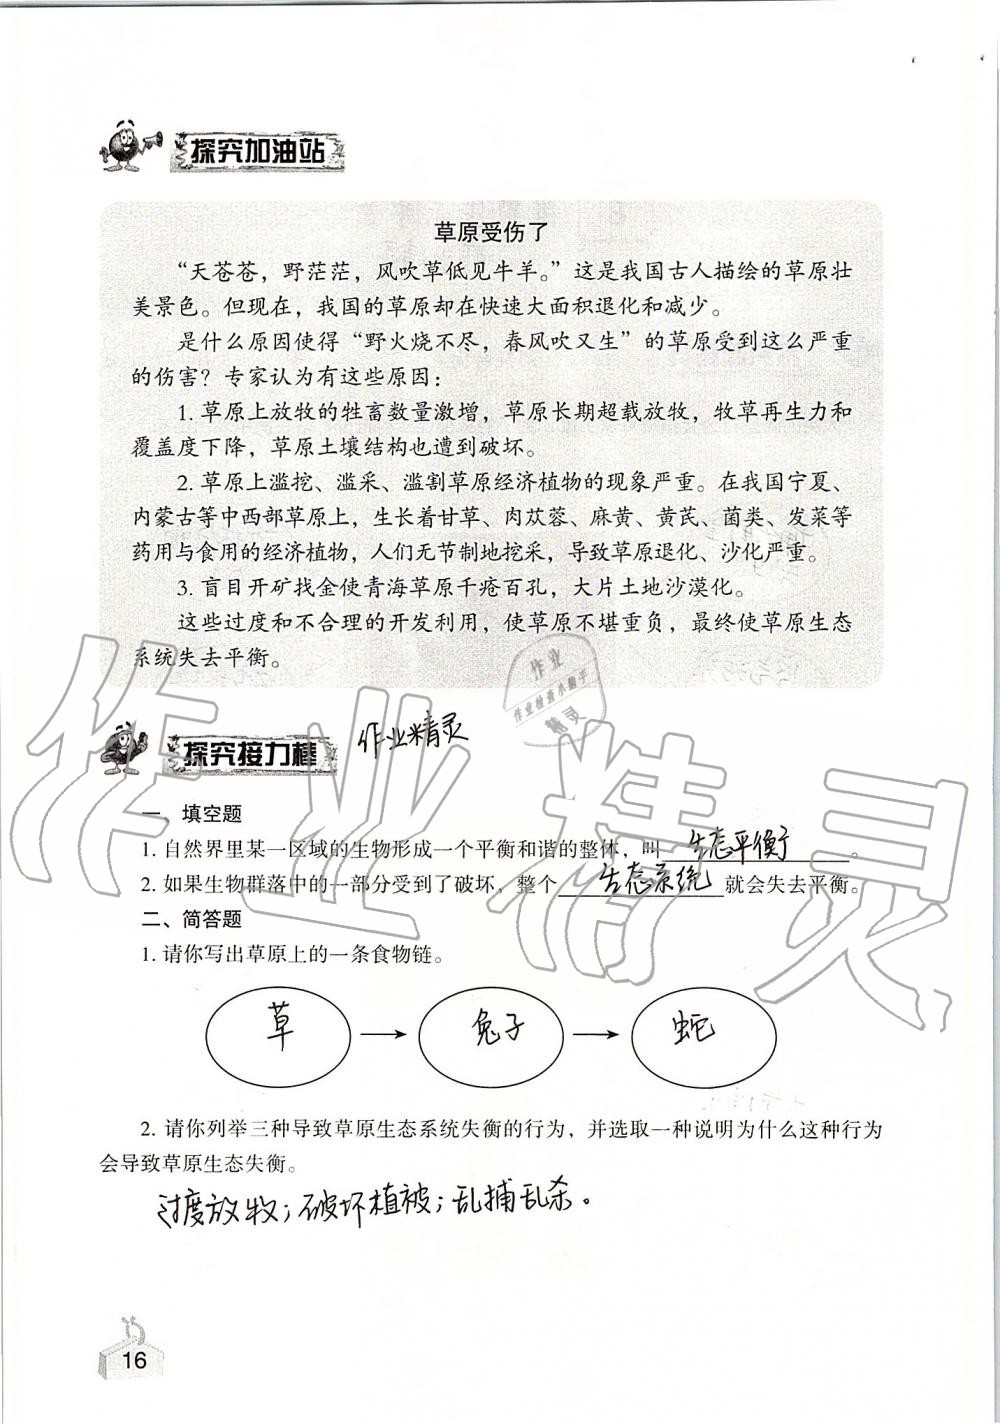 探究加油站
草原受伤了
“天苍苍，野茫茫，风吹草低见牛羊。”这是我国古人描绘的草原壮
美景色。但现在，我国的草原却在快速大面积退化和减少。
是什么原因使得“野火烧不尽，春风吹又生”的草原受到这么严重
的伤害？专家认为有这些原因：
1. 草原上放牧的牲畜数量激增，草原长期超载放牧，牧草再生力和
覆盖度下降，草原土壤结构也遭到破坏。
2. 草原上滥挖、滥采、滥割草原经济植物的现象严重。在我国宁夏、
内蒙古等中西部草原上，生长着甘草、肉苁蓉、麻黄、黄芪、菌类、发菜等
药用与食用的经济植物，人们无节制地挖采，导致草原退化、沙化严重。
3. 盲目开矿找金使青海草原千疮百孔，大片土地沙漠化。
这些过度和不合理的开发利用，使草原不堪重负，最终使草原生态
系统失去平衡。
作业
作业检查小助手
精灵
探究接力棒
作业精灵
作业精灵
一、填空题
1. 自然界里某一区域的生物形成一个平衡和谐的整体，叫 生态平衡 。
2. 如果生物群落中的一部分受到了破坏，整个 生态系统 就会失去平衡。
二、简答题
1. 请你写出草原上的一条食物链。
草 → 兔子 → 蛇
2. 请你列举三种导致草原生态系统失衡的行为，并选取一种说明为什么这种行为
会导致草原生态失衡。
过度放牧；破坏植被；乱捕乱杀。
16